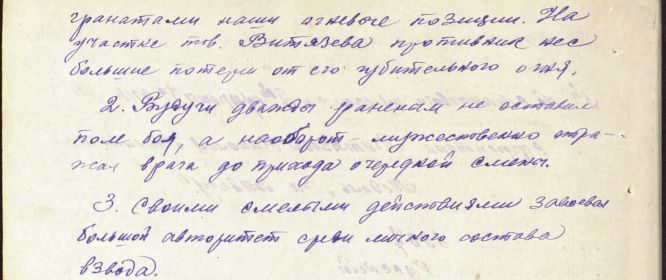 гранатами наши огневые позиции. На
участке тов. Витязева противник нес
большие потери от его губительного огня.
2. Будучи дважды раненым не оставил
поле боя, а наоборот мужественно отра-
жал врага до прихода очередной смены.
3. Своими смелыми действиями завоевал
большой авторитет среди личного состава
взвода.